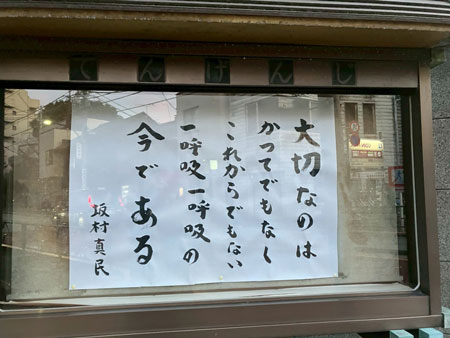 でんげんじ
大切なのは
かつてでもなく
これからでもない
一呼吸一呼吸の
今である
坂村真民